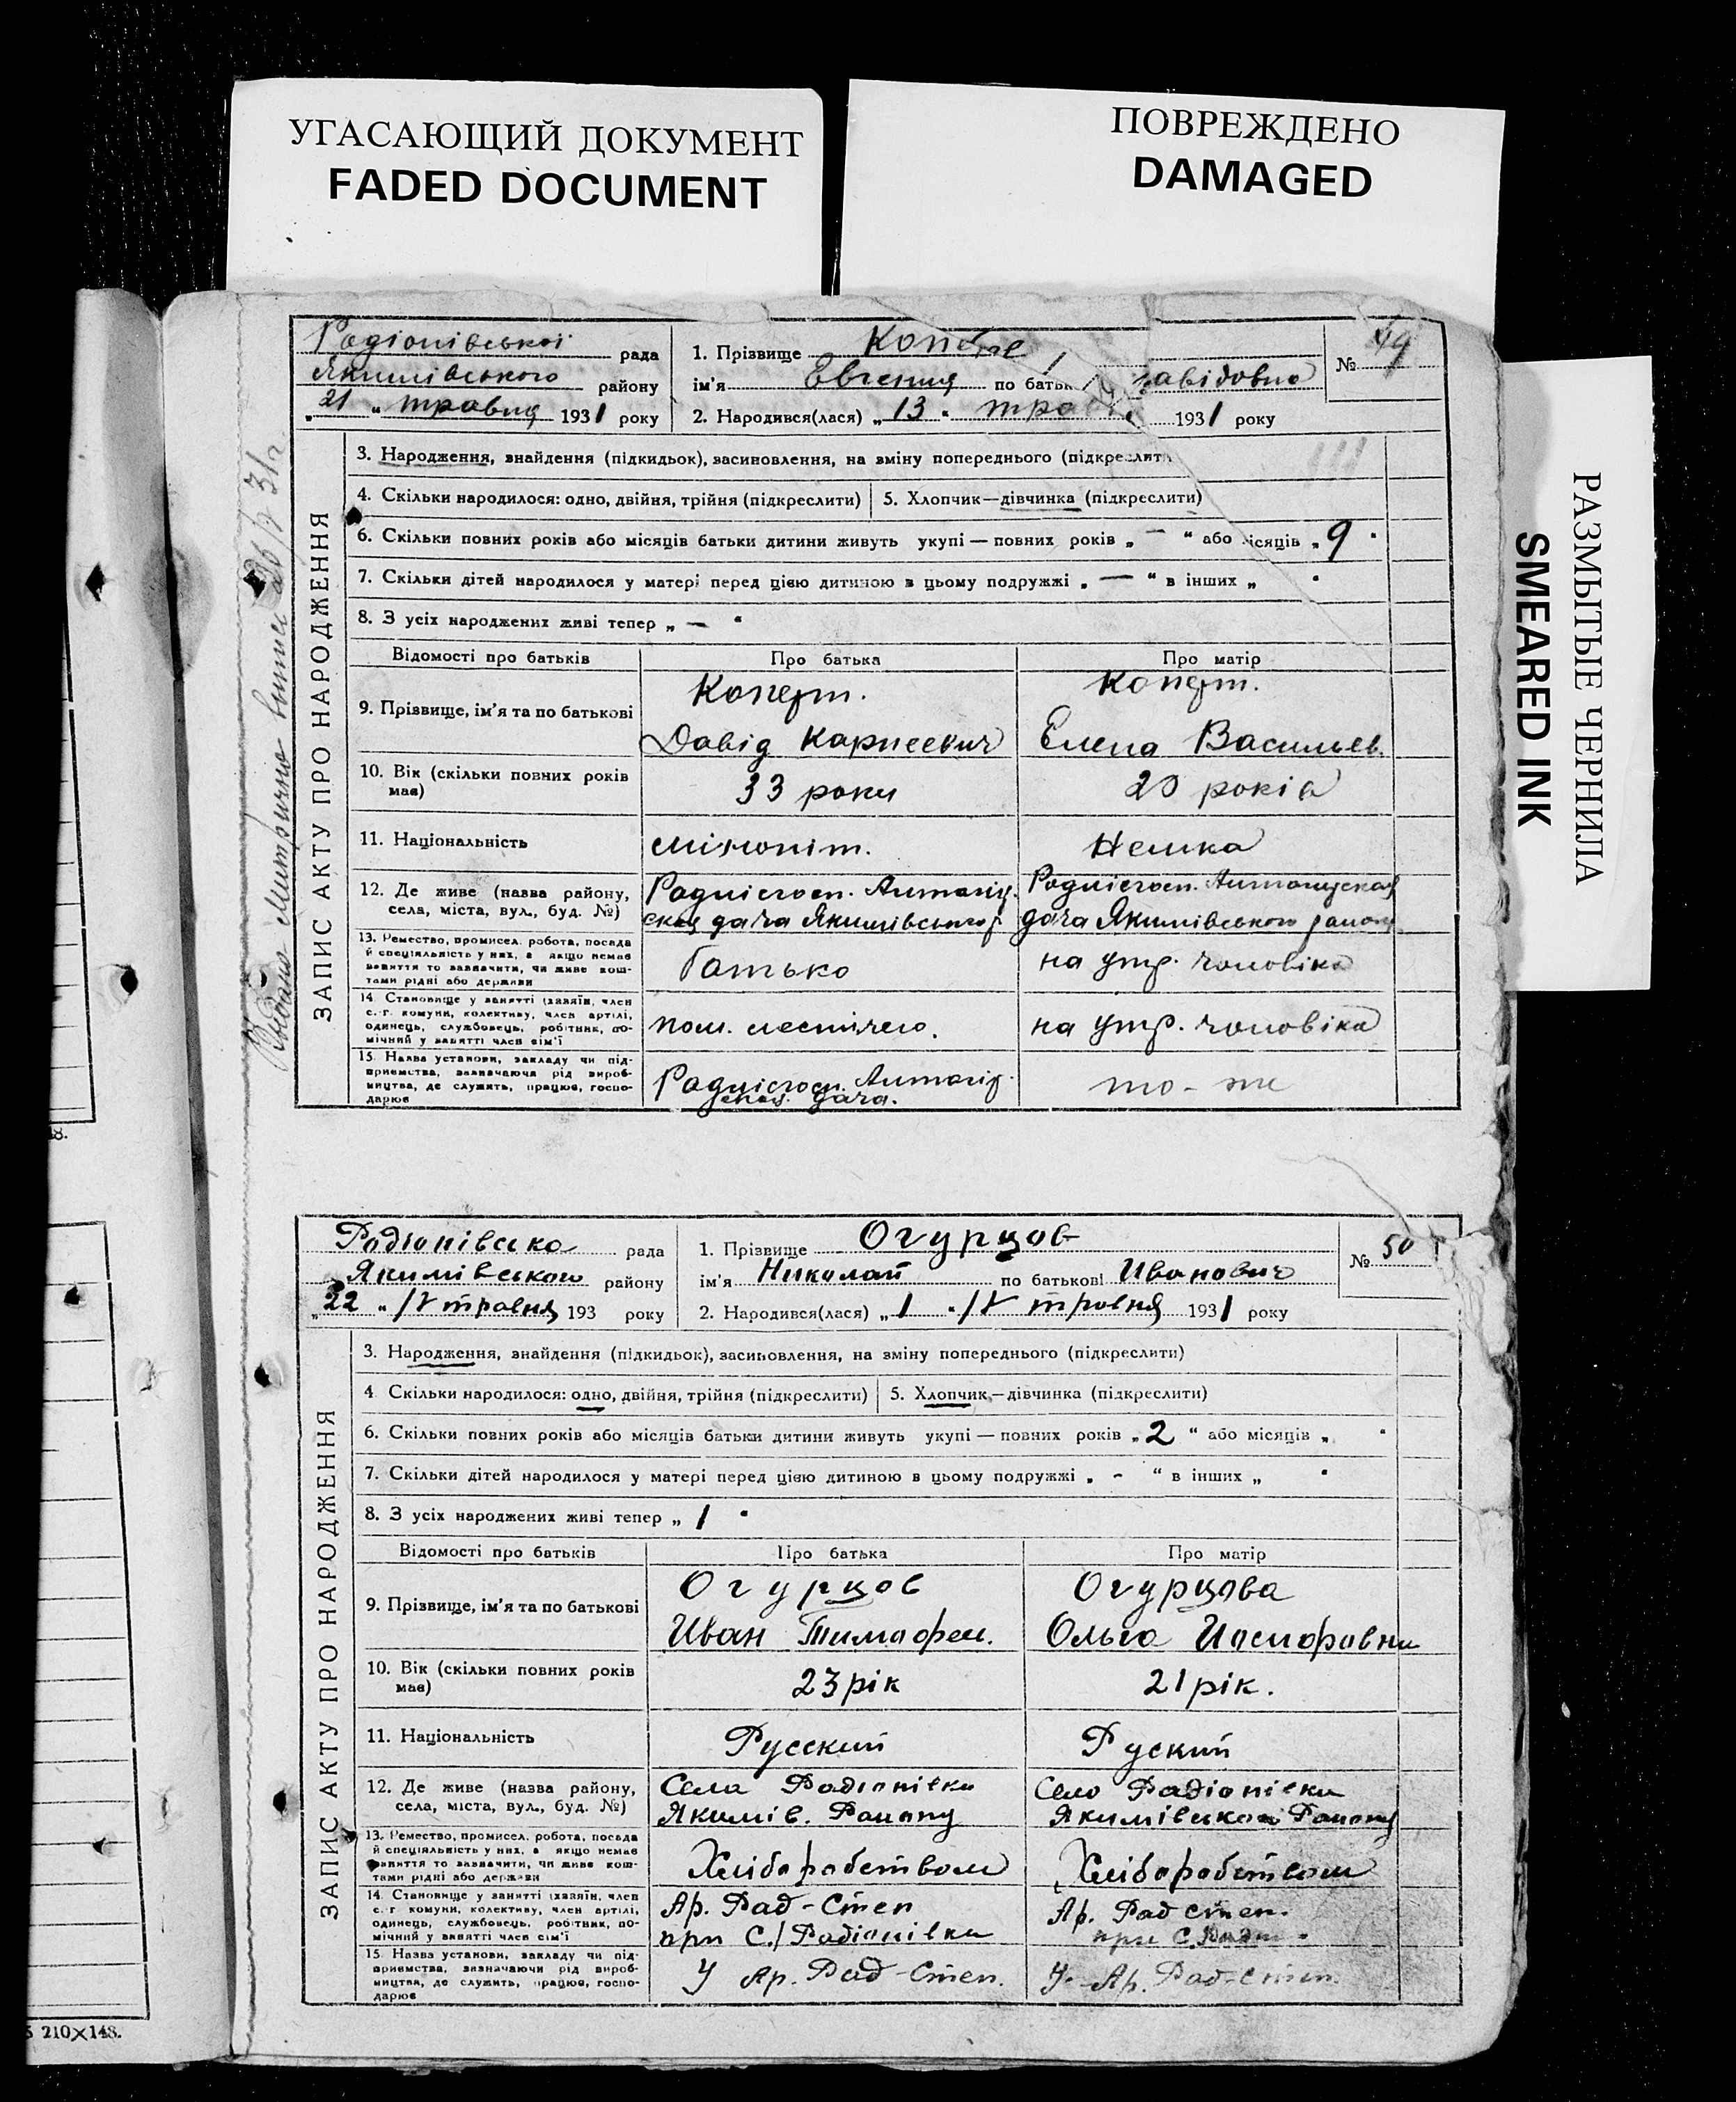 УГАСАЮЩИЙ ДОКУМЕНТ
FADED DOCUMENT
ПОВРЕЖДЕНО
DAMAGED
РАЗМЫТЫЕ ЧЕРНИЛА
SMEARED INK
Радіонівської рада
Якимівського району
„21“ травня 1931 року
1. Прізвище
ім'я Евгения по батьк Давідовна
2. Народився(лася) „13“ трав 1931 року
№ 49
ЗАПИС АКТУ ПРО НАРОДЖЕННЯ
3. Народження, знайдення (підкидьок), засиновлення, на зміну попереднього (підкреслити
4. Скільки народилося: одно, двійня, трійня (підкреслити) 5. Хлопчик—дівчинка (підкреслити)
6. Скільки повних років або місяців батьки дитини живуть укупі — повних років „ — “ або місяців „ 9 “
7. Скільки дітей народилося у матері перед цією дитиною в цьому подружжі „ — “ в інших „ “
8. З усіх народжених живі тепер „ — “
Відомості про батьків Про батька Про матір
9. Прізвище, ім'я та по батькові
Коперт. Коперт.
Давід Карнеевич Елена Васильев.
10. Вік (скільки повних років має)
33 роки 20 років
11. Національність
міноніт. Немка
12. Де живе (назва району, села, міста, вул., буд. №)
дача Якимівського р
дача Якимівського району
13. Ремество, промисел, робота, посада й спеціяльність у них, а якщо немає заняття то зазначити, чи живе коштами рідні або держави
батько на утр. чоловіка
14. Становище у занятті (хазяїн, член с.-г. комуни, колективу, член артілі, одинець, службовець, робітник, помічний у занятті член сім'ї
пом. на утр. чоловіка
15. Назва установи, закладу чи підприємства, зазначаючи рід виробництва, де служить, працює, господарює
дача. то-же
Радіонівська рада
Якимівського району
„22“ IV травня 193 року
1. Прізвище Огурцов
ім'я Николай по батькові Иванович
2. Народився(лася) „1“ IV травня 1931 року
№ 50
ЗАПИС АКТУ ПРО НАРОДЖЕННЯ
3. Народження, знайдення (підкидьок), засиновлення, на зміну попереднього (підкреслити)
4 Скільки народилося: одно, двійня, трійня (підкреслити) 5. Хлопчик—дівчинка (підкреслити)
6. Скільки повних років або місяців батьки дитини живуть укупі — повних років „ 2 “ або місяців „ “
7. Скільки дітей народилося у матері перед цією дитиною в цьому подружжі „ - “ в інших „ “
8. З усіх народжених живі тепер „ 1 “
Відомості про батьків Про батька Про матір
9. Прізвище, ім'я та по батькові
Огурцов Огурцова
Иван Тимофеи. Ольга Иосифовни
10. Вік (скільки повних років має)
23 рік 21 рік.
11. Національність
Русский Руский
12. Де живе (назва району, села, міста, вул., буд. №)
Села Радіонівки Село Радіонівки
Якимів. Району Якимівського Району
13. Ремество, промисел, робота, посада й спеціяльність у них, а якщо немає заняття то зазначити, чи живе коштами рідні або держави
Хліборобством Хліборобством
14. Становище у занятті (хазяїн, член с.-г. комуни, колективу, член артілі, одинець, службовець, робітник, помічний у занятті член сім'ї
Ар. Рад-Степ Ар. Рад Степ.
при С./Радіонівки при С. Радіо.
15. Назва установи, закладу чи підприємства, зазначаючи рід виробництва, де служить, працює, господарює
У Ар. Рад-Степ. У. Ар. Рад-Степ.
210×148.